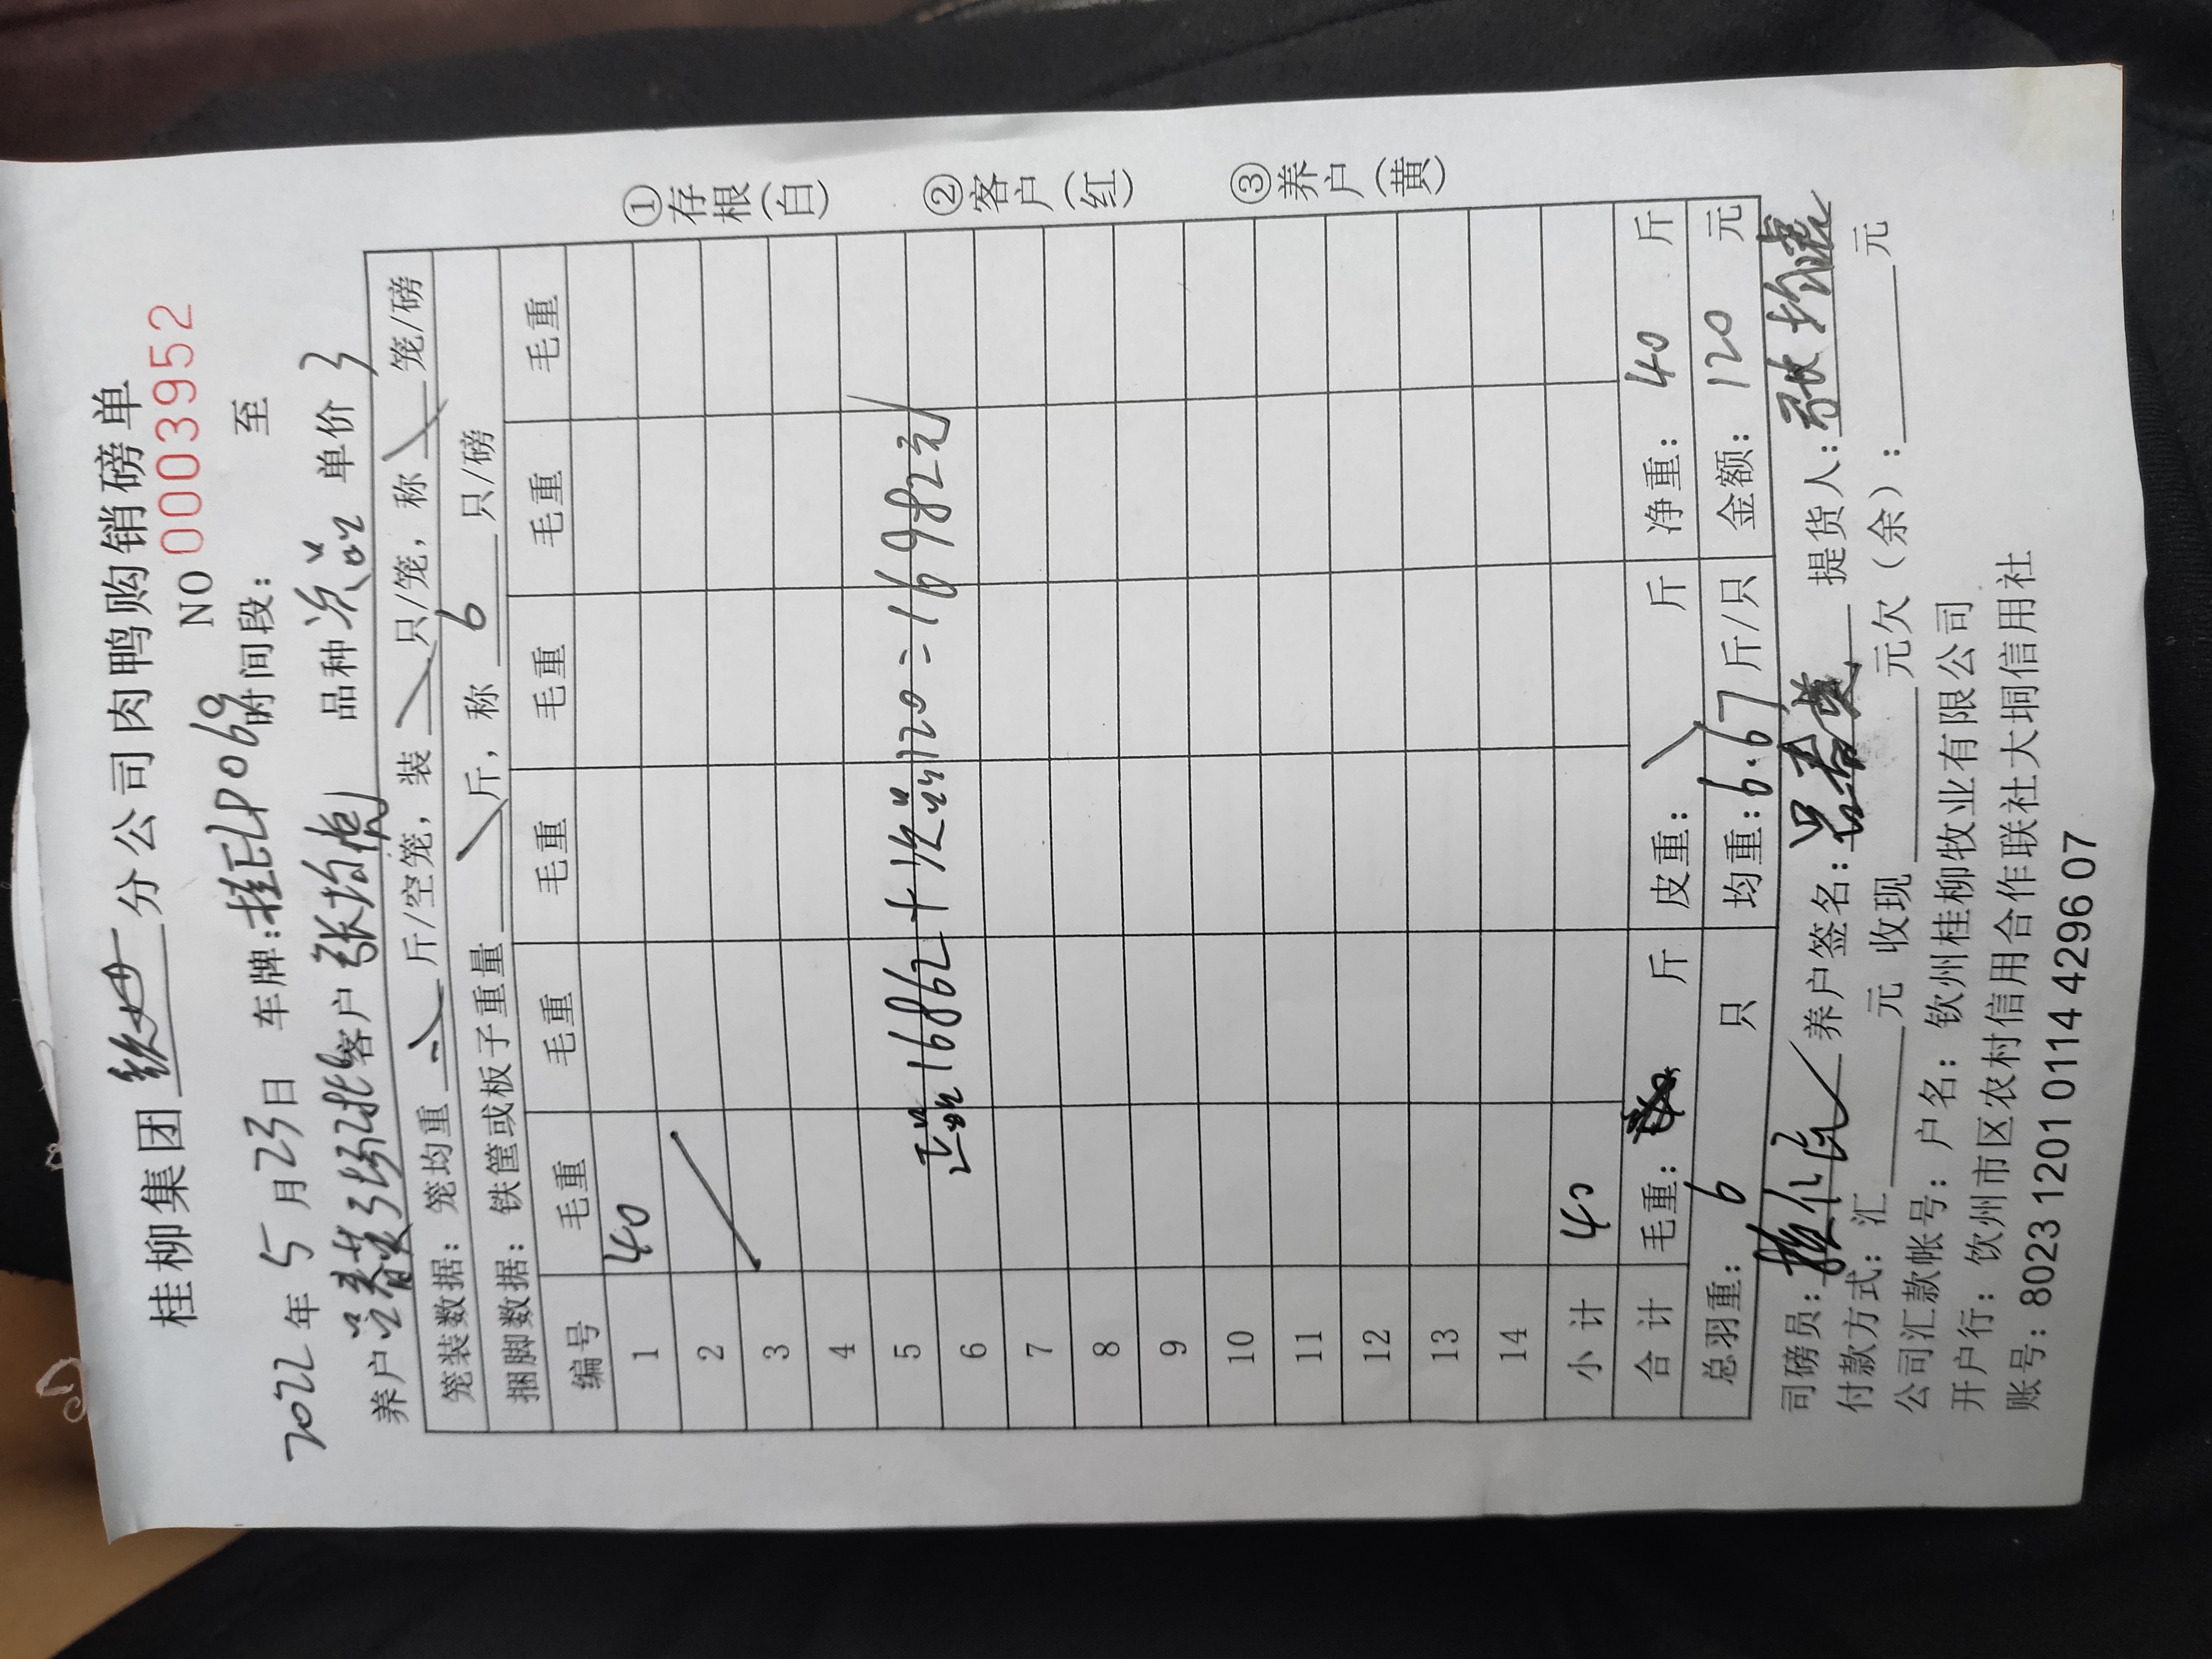 桂柳集团 钦州 分公司肉鸭购销磅单
NO 0003952
2022年5月23日 车牌:桂ELP069 时间段: 至
养户 客户 张均 品种 次品 单价 3
笼装数据: 笼均重 斤/空笼, 装 只/笼, 称 笼/磅
捆脚数据: 铁筐或板子重量 斤, 称 6 只/磅
编号 毛重 毛重 毛重 毛重 毛重 毛重
1 40
2
3
4
5
6
正品16862+次品120=16982元
7
8
9
10
11
12
13
14
小计 40
合计 毛重: 斤 皮重: 斤 净重: 40 斤
总羽重: 6 只 均重: 6.67 斤/只 金额: 120 元
司磅员: 养户签名: 提货人: 张均
付款方式: 汇 元 收现 元欠(余): 元
公司汇款帐号: 户名: 钦州桂柳牧业有限公司
开户行: 饮州市区农村信用合作联社大垌信用社
账号: 8023 1201 0114 4296 07
①存根(白)
②客户(红)
③养户(黄)